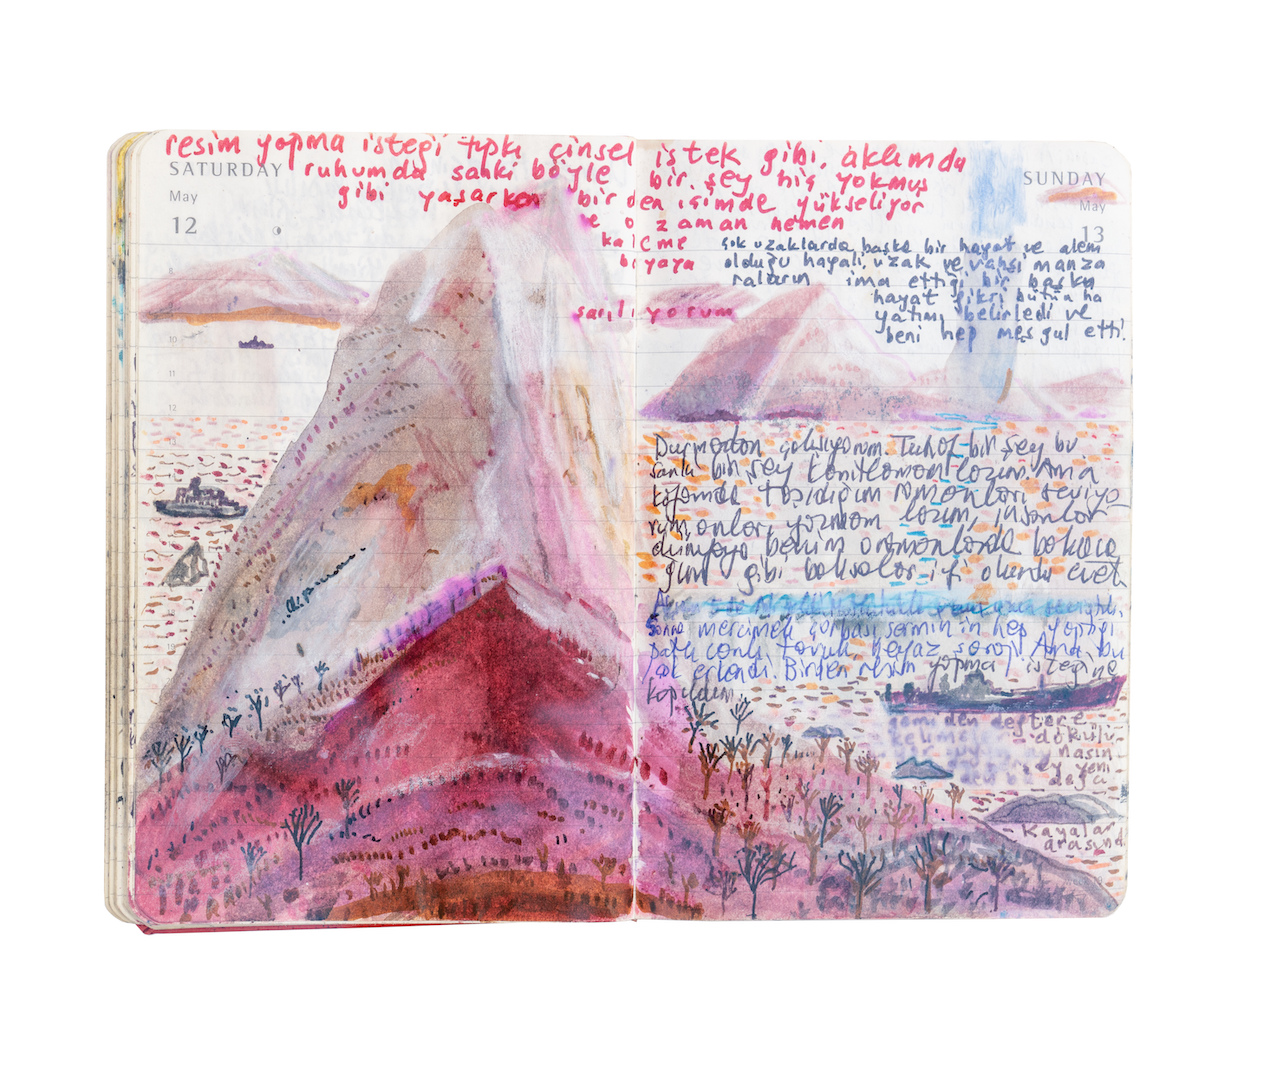 resim yapma isteği tıpkı cinsel istek gibi, aklımda
SATURDAY
ruhumda sanki böyle bir şey hiç yokmuş
SUNDAY
May
gibi yaşarken birden içimde yükseliyor
May
12
ve o zaman hemen
13
kaleme
boyaya
sarılıyorum
çok uzaklarda başka bir hayat ve alem
olduğu hayali, uzak ve vahşi manza
raların ima ettiği bir başka
hayat fikri bütün ha
yatımı belirledi ve
beni hep meşgul etti.
8
10
11
12
Durmadan çalışıyorum. Tuhaf bir şey bu
sanki bir şey kanıtlamam lazım. Ama
kafamda taşıdığım romanları seviyo
rum, onları yazmam lazım, insanlar
dünyaya benim romanlarda bakaca
ğım gibi baksalar iyi olurdu evet
sonra mercimek çorbası Şermin'in hep yaptığı
patlıcanlı tavuk, beyaz şarap! Ama bu
çok erkendi. Birden resim yapma isteğine
kapıldım.
gemiden deftere
kelime dökülü
nasın
şey yeni
defa
Kayalar
arasında